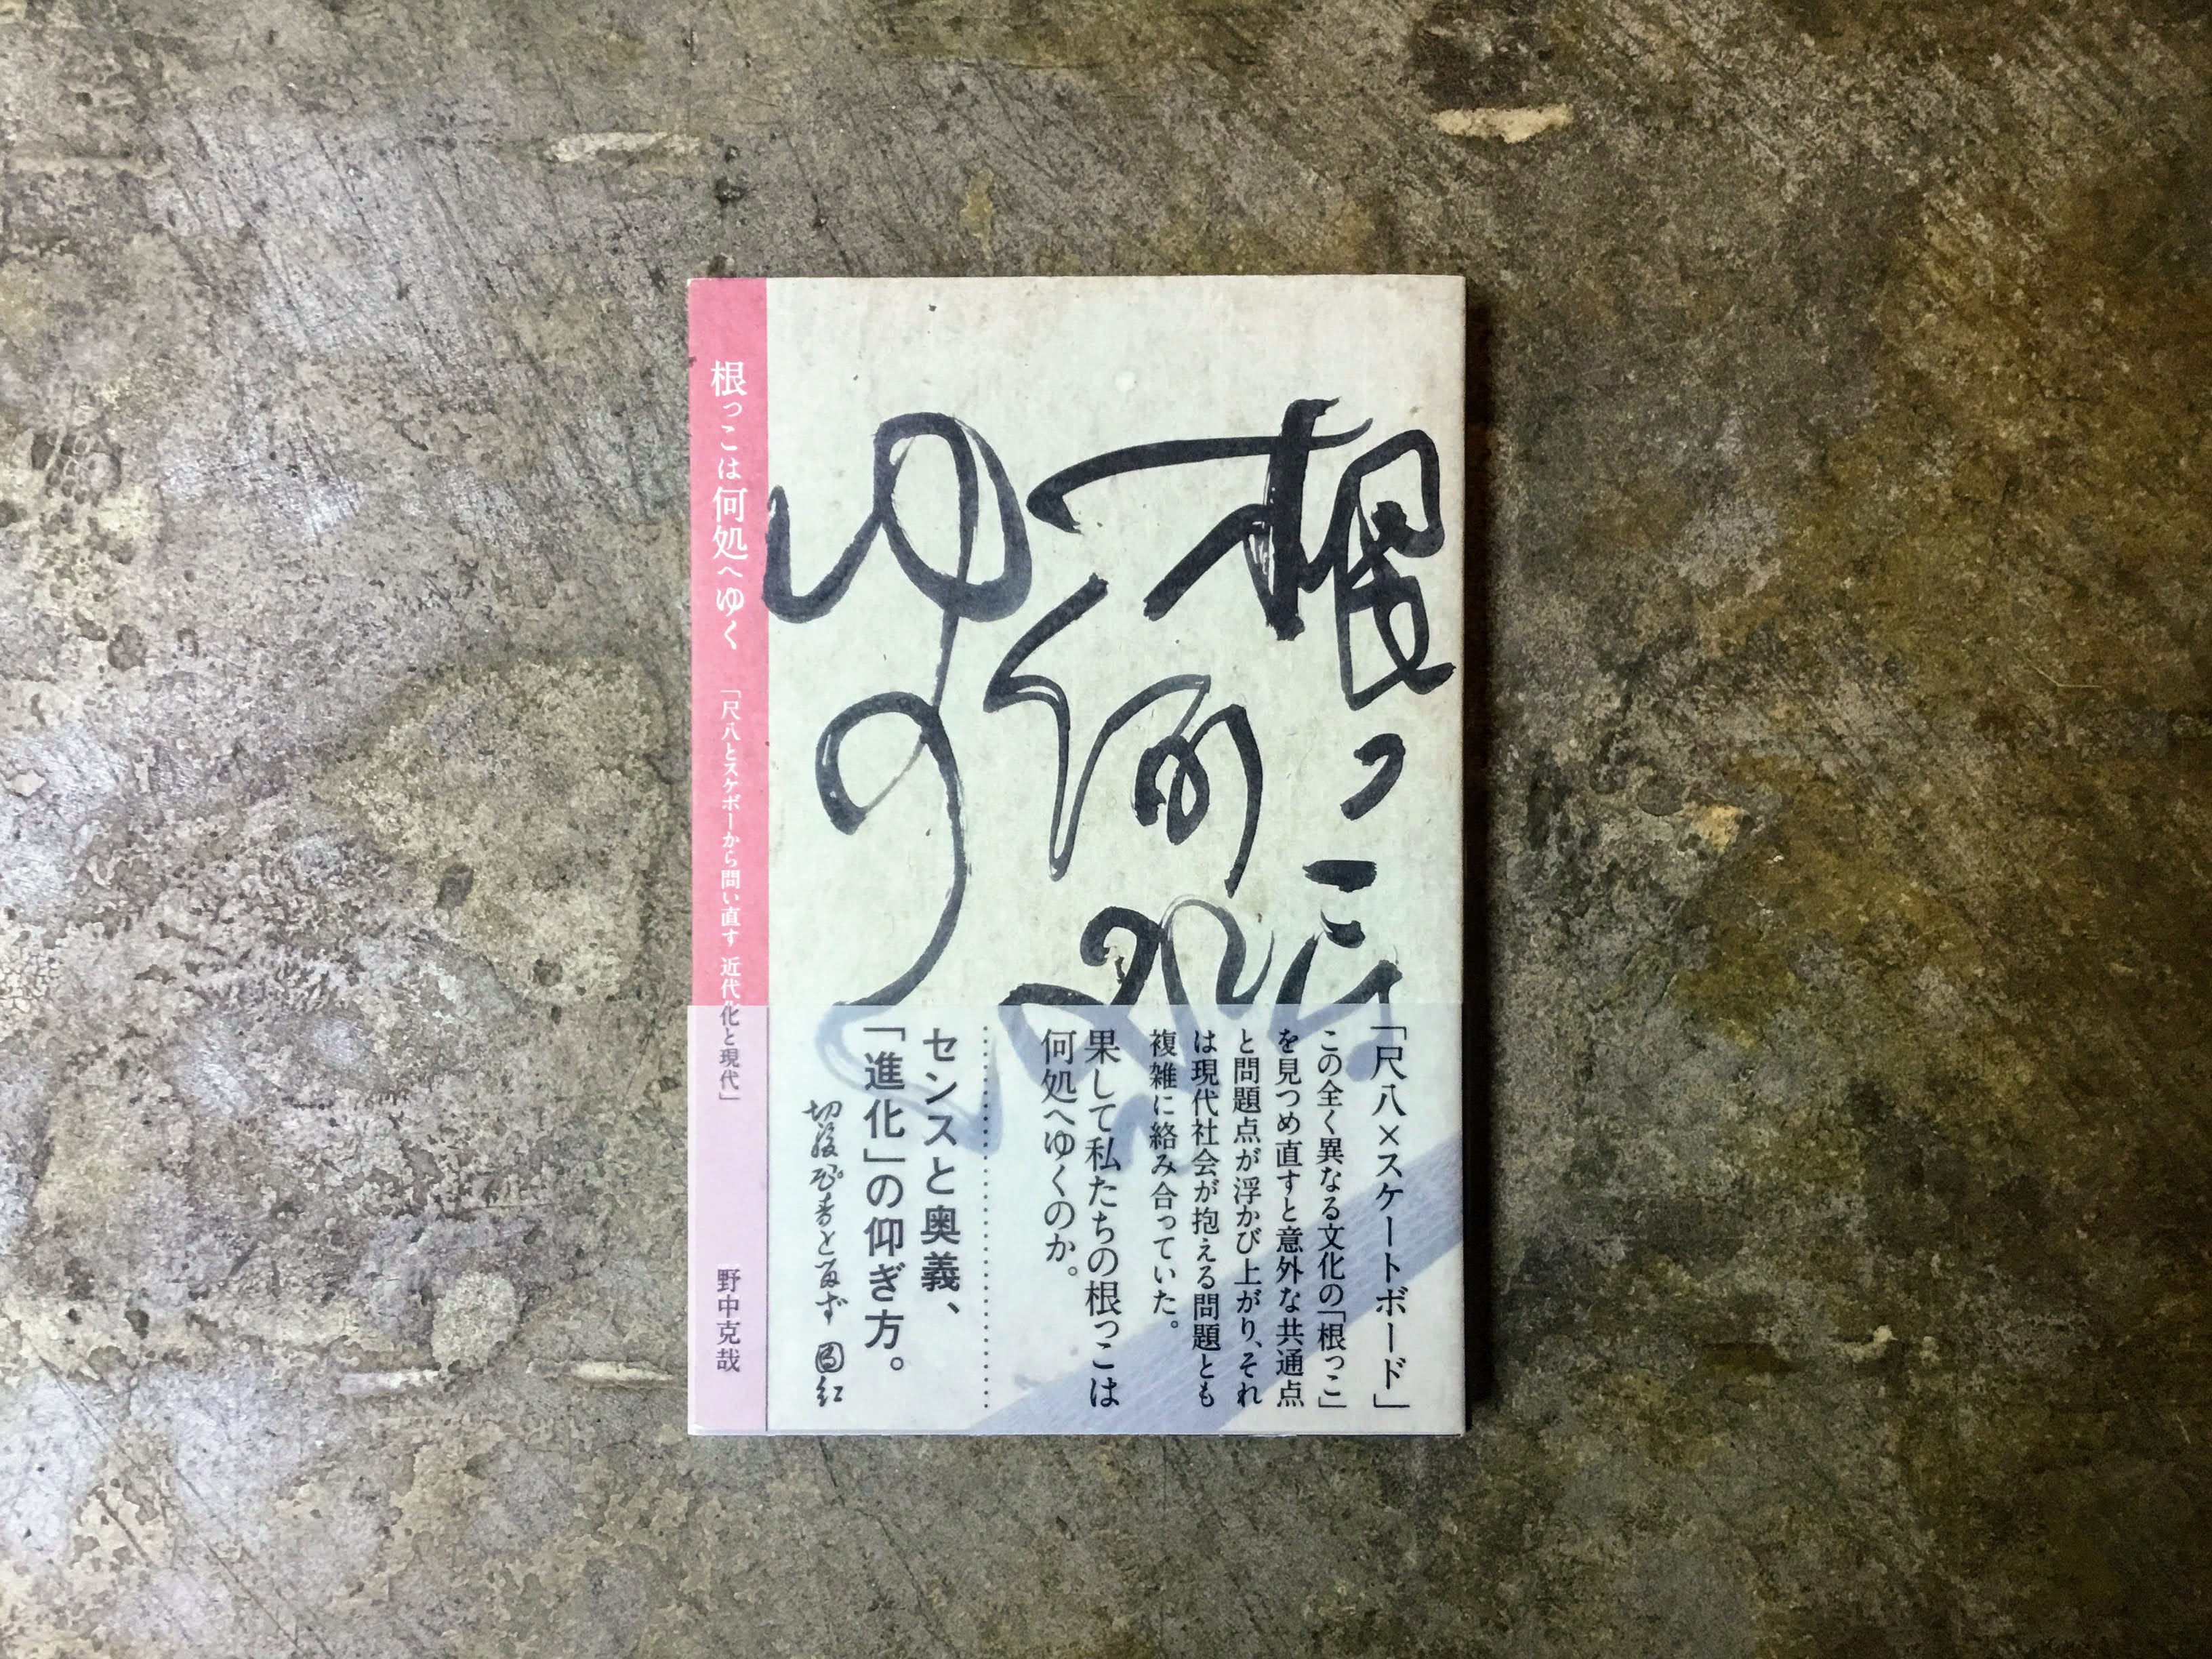 根っこは
何処へ
ゆく
「尺八×スケートボード」
この全く異なる文化の「根っこ」
を見つめ直すと意外な共通点
と問題点が浮かび上がり、それ
は現代社会が抱える問題とも
複雑に絡み合っていた。
果して私たちの根っこは
何処へゆくのか。
センスと奥義、
「進化」の仰ぎ方。
根っこは何処へゆく 「尺八とスケボーから問い直す 近代化と現代」 野中克哉